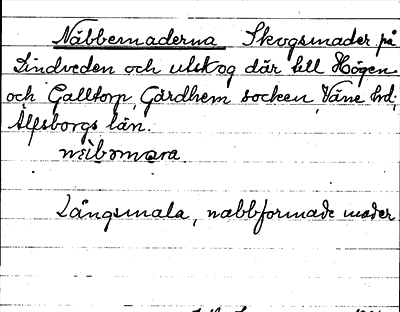 Näbbemaderna Skogsmader på
Lindveden och utskog där till Högen
och Galltorp, Gärdhem socken, Väne hd,
Älfsborgs län.
Långsmala, nabbformade mader